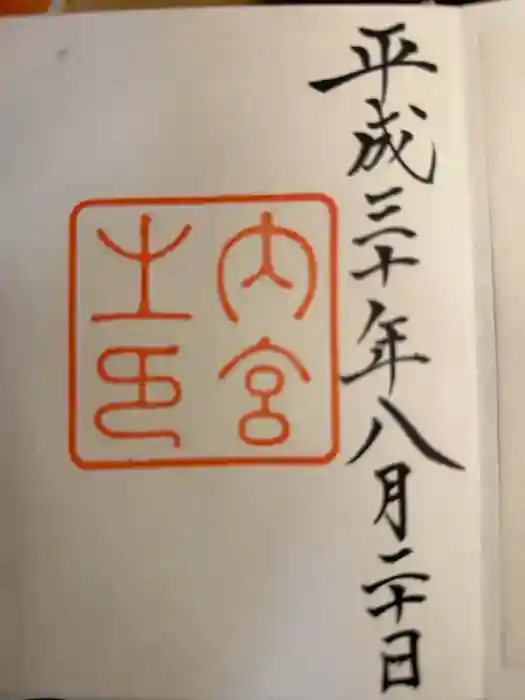 平成三十年八月二十日
内宮
之印